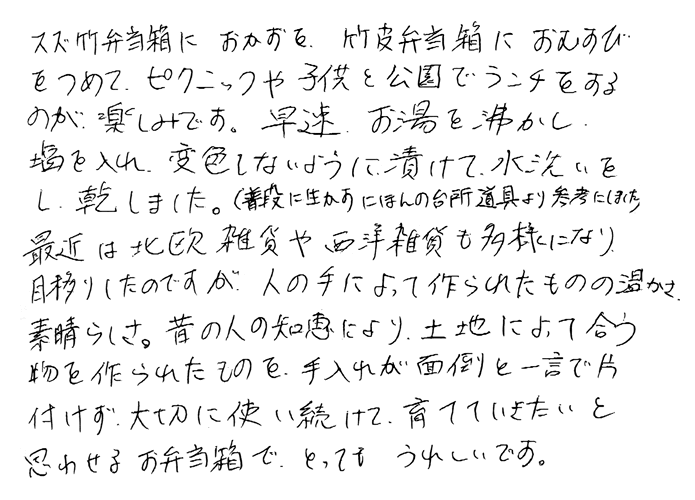 スズ竹弁当箱に おかずを、竹皮弁当箱に おむすび
をつめて、ピクニックや 子供と公園でランチをする
のが、楽しみです。早速、お湯を沸かし、
塩を入れ、変色しないように、漬けて、水洗いを
し、乾しました。(普段に生かすにほんの台所道具より参考にしました
最近は北欧雑貨や西洋雑貨も多様になり、
目移りしたのですが、人の手によって作られたものの温かさ、
素晴らしさ。昔の人の知恵により、土地によって合う
物を作られたものを、手入れが面倒と一言で片
付けず、大切に使い続けて、育てていきたいと
思わせるお弁当箱で、とっても うれしいです。